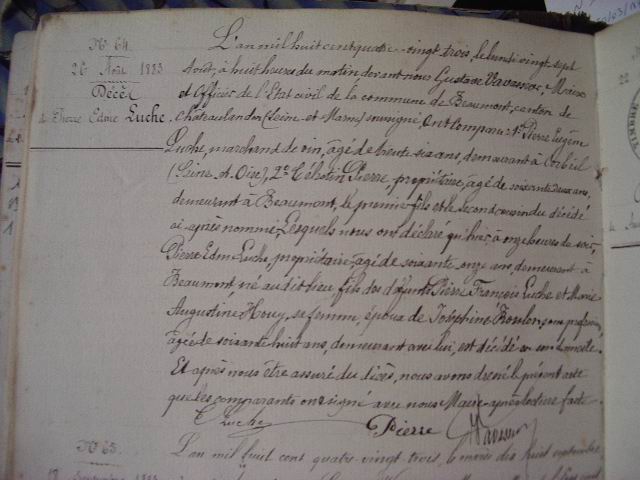 No 64.
26 Août 1883
Décès
de Pierre Edme Luche
L'an mil huit cent quatre-vingt trois, le lundi vingt sept
Août, à huit heures du matin devant nous Gustave Vavasseur, Maire
et Officier de l'Etat civil de la commune de Beaumont, canton de
chateaulandon (Seine et Marne) soussigné Ont Comparu 1o Pierre Eugène
Luche, marchand de vin, âgé de trente six ans, demeurant à Corbeil
(Seine et Oise), 2o Célestin Pierre, propriétaire, âgé de soixante deux ans,
demeurant à Beaumont, le premier fils et le second cousin du décédé
ci-après nommé, Lesquels nous ont déclaré qu'hier, à onze heures du soir,
Pierre Edme Luche, propriétaire, âgé de soixante onze ans, demeurant à
Beaumont, né audit lieu, fils des défunts Pierre François Luche et Marie
Augustine Houy, sa femme, époux de Joséphine Roulon, sans profession,
âgée de soixante huit ans, demeurant avec lui, est décédé en son domicile.
Et après nous être assuré du décès, nous avons dressé le présent acte
que les comparants ont signé avec nous Maire après lecture faite.
E Luche Pierre Vavasseur
No 65.
L'an mil huit cent quatre-vingt trois, le mardi dix huit septembre